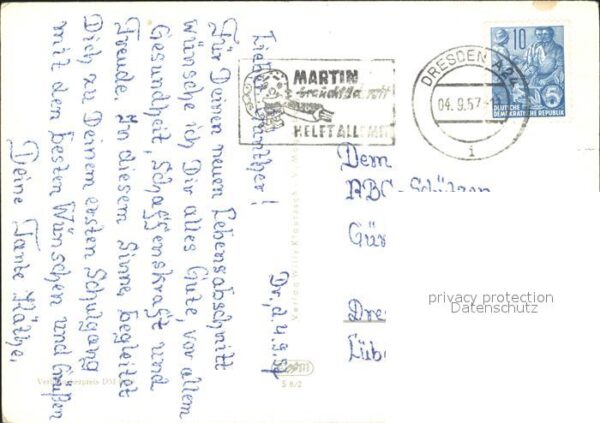 Dr., d. 4.9.57
Lieber Günther!
Für Deinen neuen Lebensabschnitt
wünsche ich Dir alles Gute, vor allem
Gesundheit, Schaffenskraft und
Freude. In diesem Sinne begleitet
Dich zu Deinem ersten Schulgang
mit den besten Wünschen und Grüßen
Deine Tante Käthe.
MARTIN
HELFT ALLE MIT
DRESDEN A24
04.9.57
1
10
5
DEUTSCHE
DEMOKRATISCHE REPUBLIK
Dem
ABC-Schützen
Gün
Dre
Lüb
privacy protection
Datenschutz
Verlag Willy
S 8/2